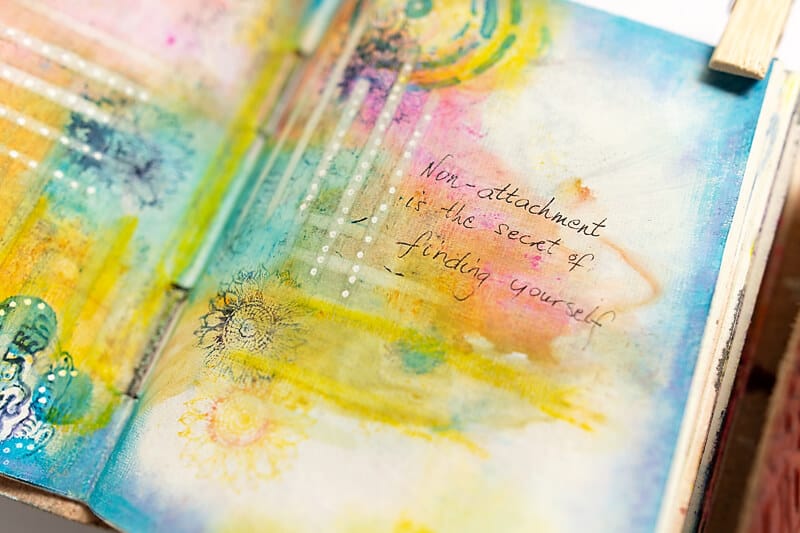 Non-attachment
is the secret of
finding yourself